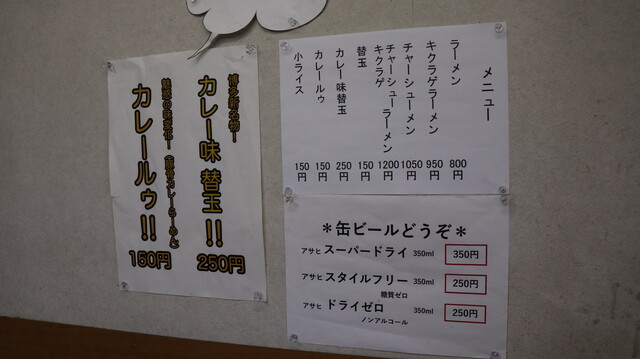 メニュー
ラーメン 800円
キクラゲラーメン 950円
チャーシューメン 1050円
キクラゲチャーシューラーメン 1200円
替玉 150円
カレー味替玉 250円
カレールゥ 150円
小ライス 150円
博多新名物!
カレー味 替玉!! 250円
魅惑の味変化!(豚骨カレーらーめん)
カレールゥ!! 150円
*缶ビールどうぞ*
アサヒ スーパードライ 350ml 350円
アサヒ スタイルフリー 350ml 250円
糖質ゼロ
アサヒ ドライゼロ 350ml 250円
ノンアルコール